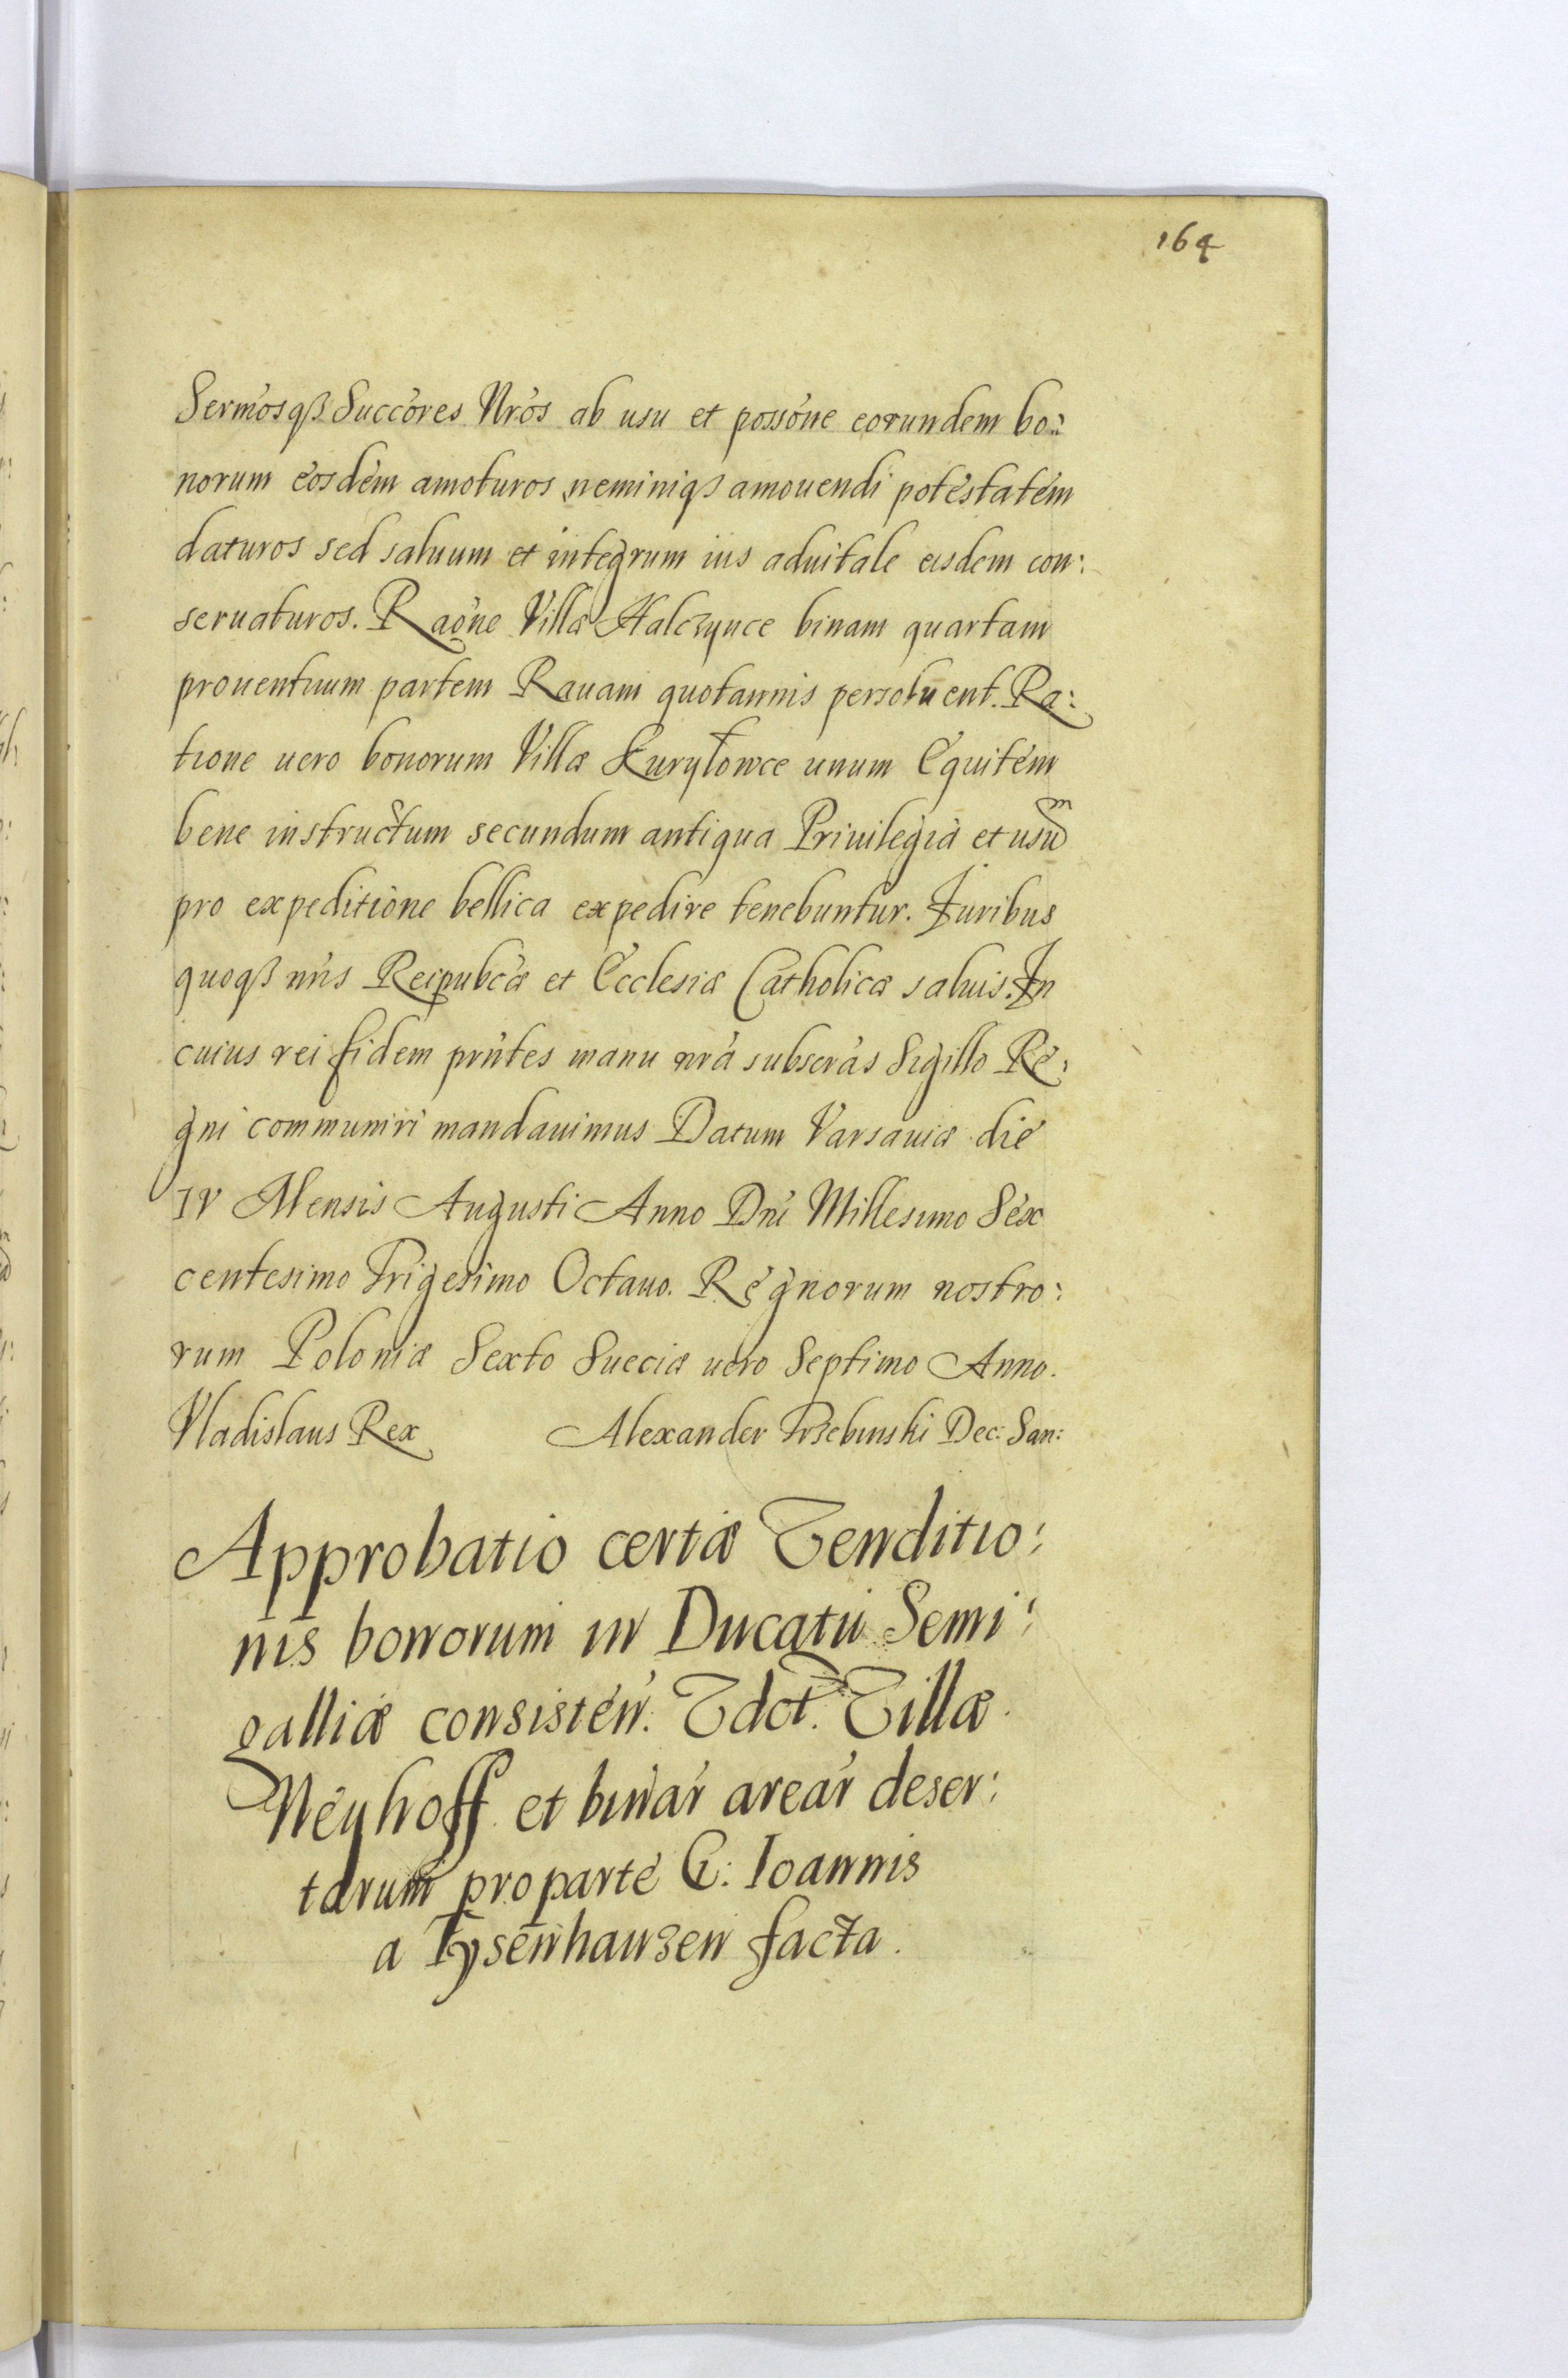 164
Sermósqß Succóres Nrós ab usu et possóne eorundem bo:
norum eosdem amoturos neminiqß amouendi potestatem
daturos sed saluum et integrum ius aduitale eisdem con:
seruaturos. Raóne Villæ Halczynce binam quartam
prouentuum partem Rauam quotannis persoluent. Ra:
tione uero bonorum Villæ Kuryłowce unum Equitem
bene instructum secundum antiqua Priuilegia et usum
pro expeditione bellica expedire tenebuntur. Juribus
quoqß nris Reipubcæ et Ecclesiæ Catholicæ saluis. In
cuius rei fidem prntes manu nrá subscrás Sigillo Re:
gni communiri mandauimus Datum Varsauiæ die
IV Mensis Augusti Anno Dni Millesimo Sex
centesimo Trigesimo Octauo. Regnorum nostro:
rum Poloniæ Sexto Sueciæ uero Septimo Anno.
Vladislaus Rex Alexander Trzebinski Dec: San:
Approbatio certæ Venditio:
nis bonorum in Ducatu Semi:
galliæ consisten. Vdct. Villæ
Neyhoff et binar arear deser:
tarum pro parte G: Ioannis
a Tysenhauzen facta.